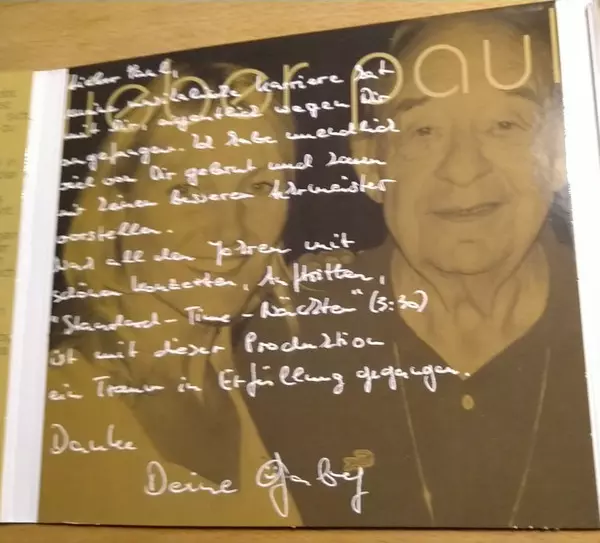 lieber paul
Lieber Paul,
meine musikalische Karriere hat
mit Dir, eigentlich wegen Dir
angefangen. Ich habe unendlich
viel von Dir gelernt und kann
mir keinen besseren Lehrmeister
vorstellen.
Nach all den Jahren mit
schönen Konzerten, Auftritten,
"Standard-Time-Nächten" (5:30)
ist mit dieser Produktion
ein Traum in Erfüllung gegangen.
Danke
Deine Gaby